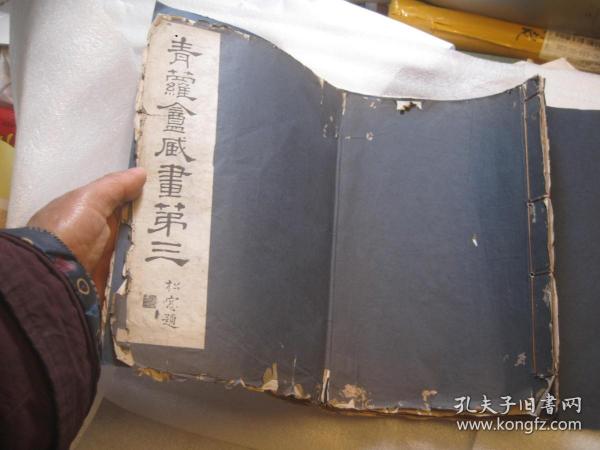 青蘿盦臧畫苐三
松窓題
孔夫子旧書网
www.kongfz.com